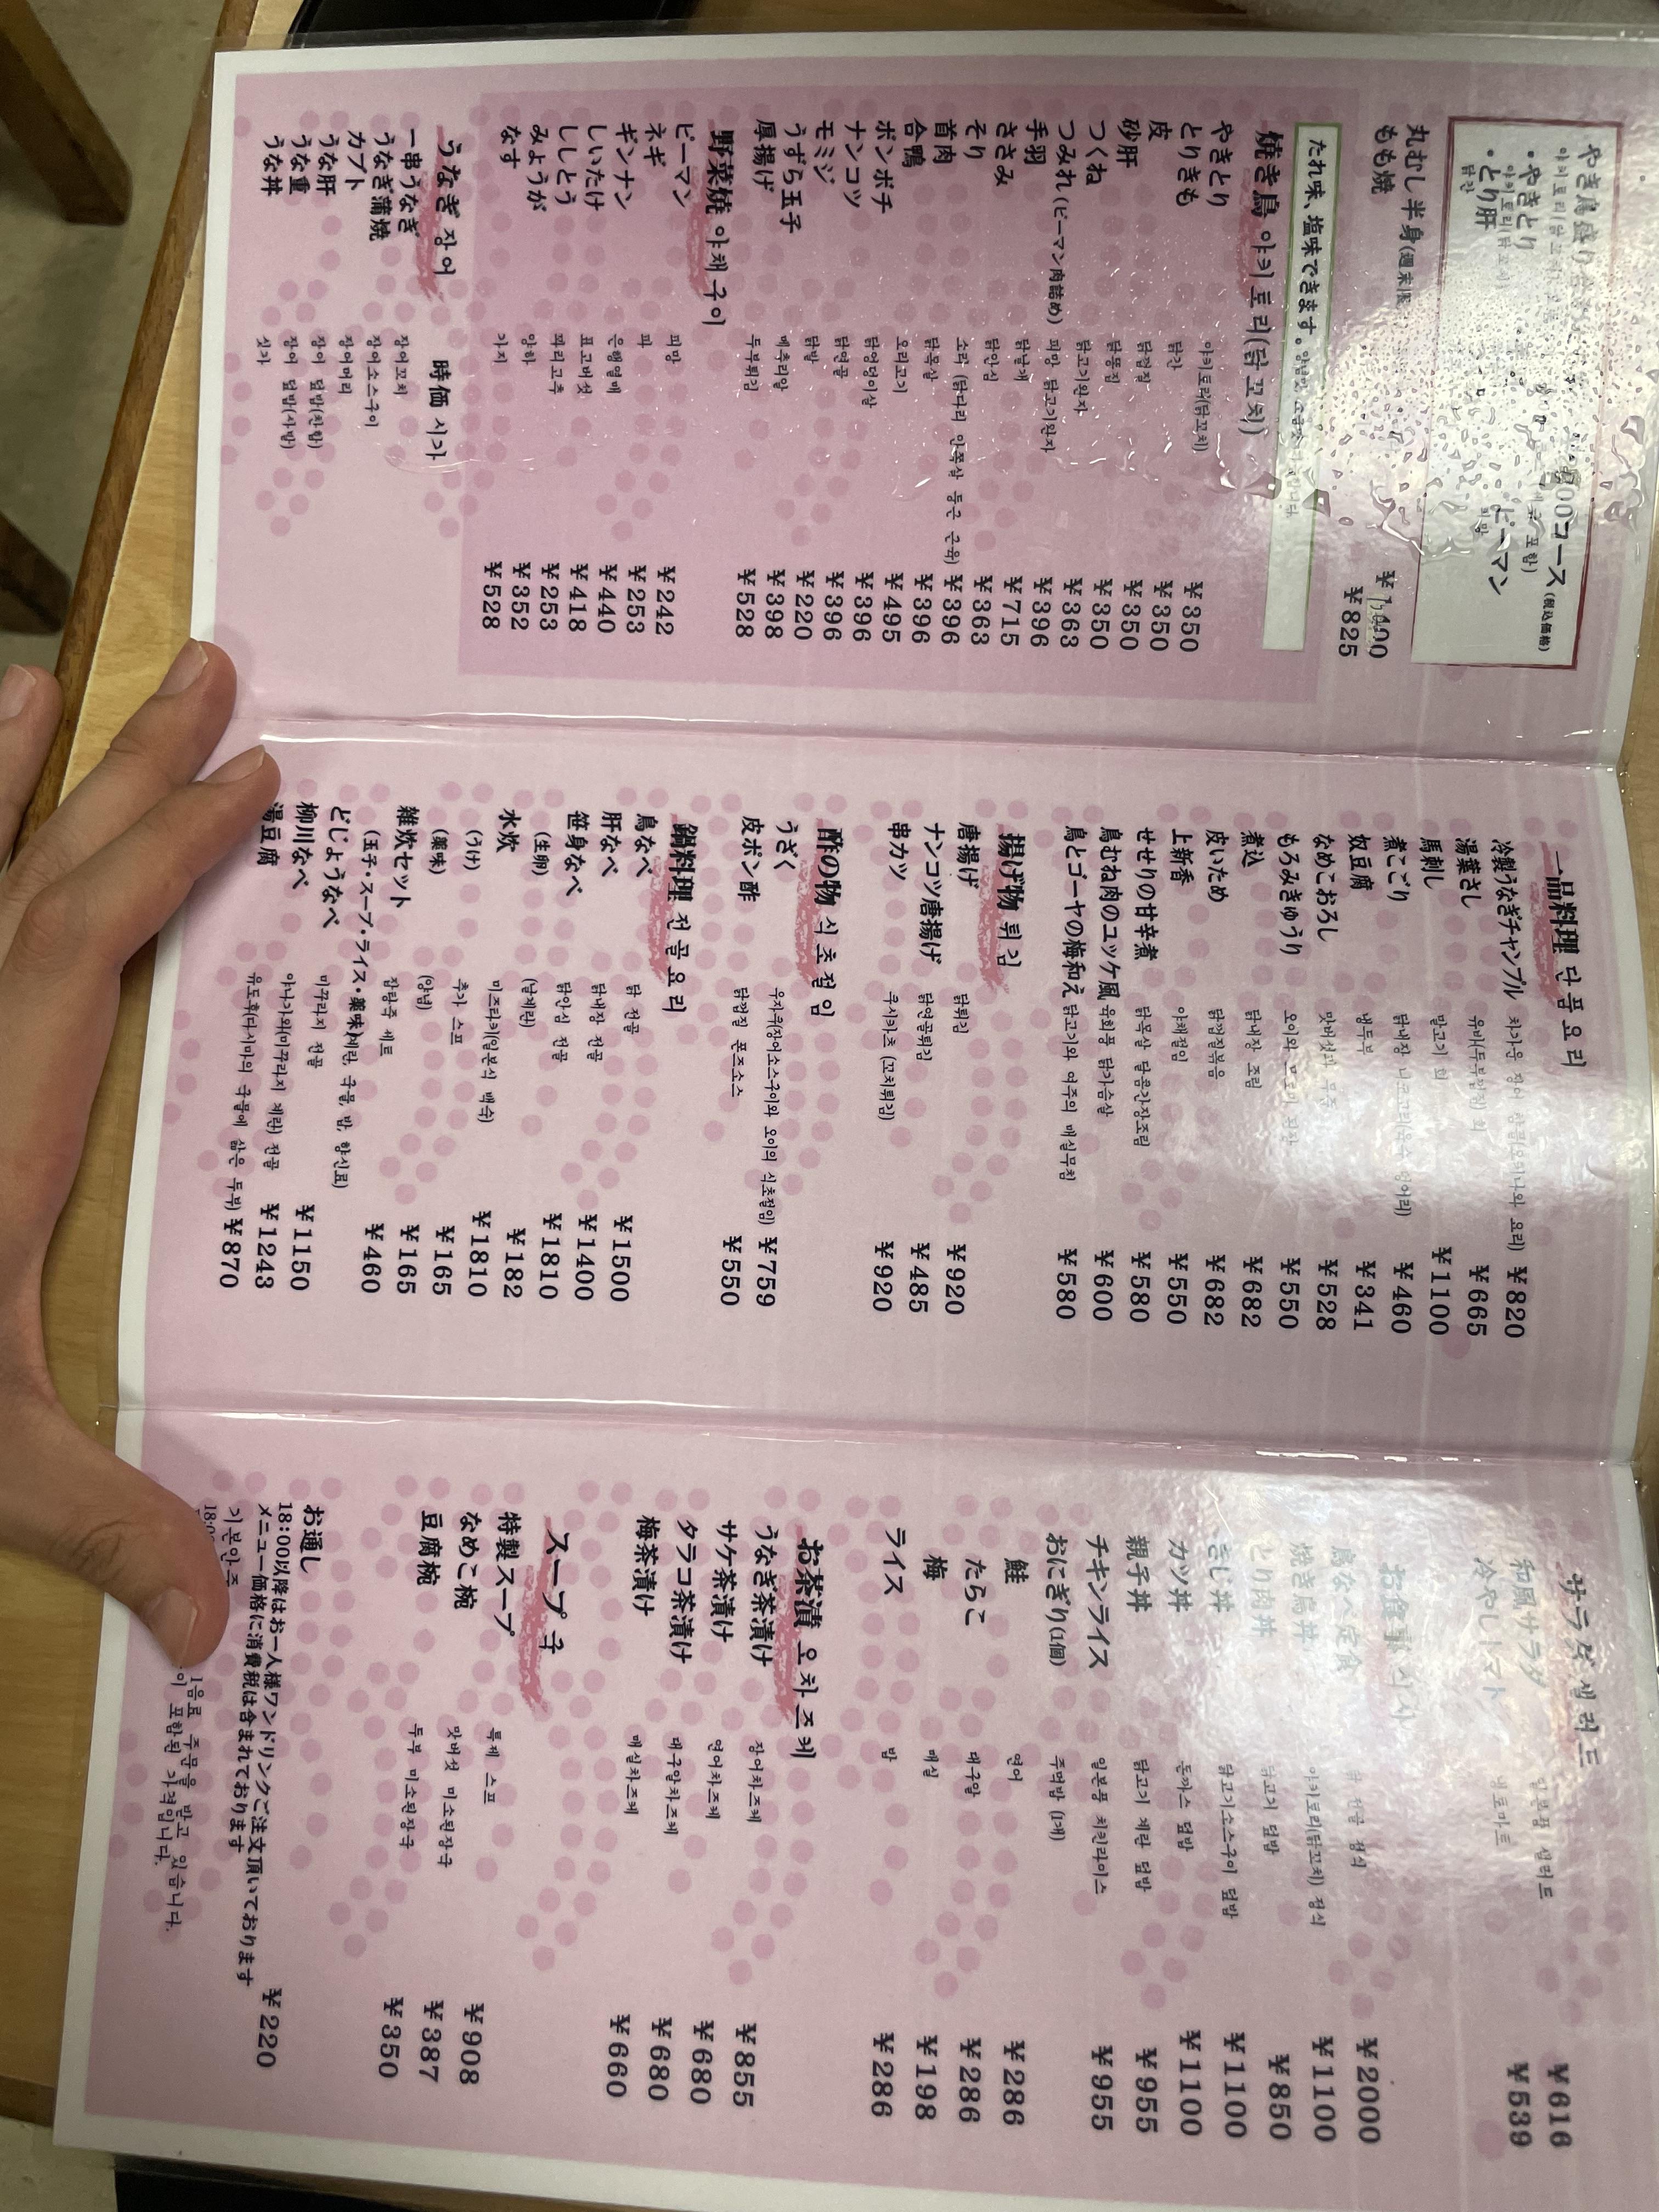 ・やきとり
・とり肝
コース(税込価格)
ピーマン
丸むし半身
もも焼 ¥825
たれ味、塩味できます。
焼き鳥 야키토리(닭꼬치)
やきとり 야키토리(닭꼬치) ¥350
とりきも 닭간 ¥350
皮 닭껍질 ¥350
砂肝 닭똥집 ¥350
つくね 닭고기완자 ¥363
つみれ(ピーマン肉詰め) 피망 닭고기완자 ¥396
手羽 닭날개 ¥715
ささみ 닭안심 ¥363
そり 소리 (닭다리 안쪽살 둥근 근육) ¥396
首肉 닭목살 ¥396
合鴨 오리고기 ¥495
ボンボチ 닭엉덩이살 ¥396
ナンコツ 닭연골 ¥396
モミジ 닭발 ¥220
うずら玉子 메추리알 ¥398
厚揚げ 두부튀김 ¥528
野菜焼 야채 구이
ピーマン 피망 ¥242
ネギ 파 ¥253
ギンナン 은행열매 ¥440
しいたけ 표고버섯 ¥418
ししとう 꽈리고추 ¥253
みょうが 양하 ¥352
なす 가지 ¥528
うなぎ 장어 時価 시가
一串うなぎ 장어꼬치
うなぎ蒲焼 장어소스구이
カブト 장어머리
うな肝 장어
うな重 장어 덮밥(찬합)
うな丼 장어 덮밥(사발)
싯가
一品料理 단품 요리
冷製うなぎチャンプル ¥820
湯葉さし 유바(두부껍질) 회 ¥665
馬刺し 말고기 회 ¥1100
煮こごり ¥460
奴豆腐 냉두부 ¥341
なめこおろし ¥528
もろみきゅうり ¥550
煮込 닭내장 조림 ¥682
皮いため 닭껍질볶음 ¥682
上新香 야채절임 ¥550
せせりの甘辛煮 닭목살 달콤간장조림 ¥580
鳥むね肉のユッケ風 육회풍 닭가슴살 ¥600
鳥とゴーヤの梅和え 닭고기와 여주의 매실무침 ¥580
揚げ物 튀김
唐揚げ 닭튀김 ¥920
ナンコツ唐揚げ 닭연골튀김 ¥485
串カツ 쿠시카츠 (꼬치튀김) ¥920
酢の物 식초절임
うざく 우자쿠(장어소스구이와 오이의 식초절임) ¥759
皮ポン酢 닭껍질 폰즈소스 ¥550
鍋料理 전골 요리
鳥なべ 닭 전골 ¥1500
肝なべ 닭내장 전골 ¥1400
笹身なべ 닭안심 전골 ¥1810
(生卵) (날계란) ¥182
水炊 미즈타키(일본식 백숙) ¥1810
(うけ) 추가 스프 ¥165
(薬味) (양념) ¥165
雑炊セット 잡탕죽 세트 ¥460
(玉子・スープ・ライス・薬味)(계란, 국물, 밥, 향신료)
どじょうなべ 미꾸라지 전골 ¥1150
柳川なべ 야나가와(미꾸라지 계란) 전골 ¥1243
湯豆腐 유도후(다시마의 국물에 삶은 두부) ¥870
サラダ 샐러드
和風サラダ 일본풍 샐러드 ¥616
冷やしトマト 냉토마토 ¥539
お食事 식사
鳥なべ定食 ¥2000
焼き鳥丼 야키토리(닭꼬치) 정식 ¥1100
とり肉丼 닭고기 덮밥 ¥850
きじ丼 닭고기소스구이 덮밥 ¥1100
カツ丼 돈까스 덮밥 ¥1100
親子丼 닭고기 계란 덮밥 ¥955
チキンライス 일본풍 치킨라이스 ¥955
おにぎり(1個) 주먹밥 (1개)
鮭 연어 ¥286
たらこ 대구알 ¥286
梅 매실 ¥198
ライス 밥 ¥286
お茶漬 오차즈케
うなぎ茶漬け 장어차즈케 ¥855
サケ茶漬け 연어차즈케 ¥680
タラコ茶漬け 대구알차즈케 ¥680
梅茶漬け 매실차즈케 ¥660
スープ 국
特製スープ 특제 스프 ¥908
なめこ椀 맛버섯 미소된장국 ¥387
豆腐椀 두부 미소된장국 ¥350
お通し ¥220
18:00以降はお一人様ワンドリンクご注文頂いております
メニュー価格に消費税は含まれております
기본안주
1음료 주문을 받고 있습니다.
이 포함된 가격입니다.